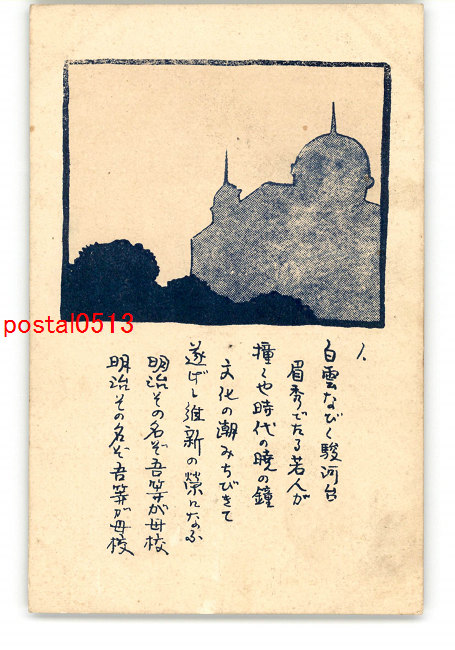 postal0513
1.
白雲なびく駿河台
眉秀でたる若人が
撞くや時代の暁の鐘
文化の潮みちびきて
遂げし維新の榮になふ
明治その名ぞ吾等が母校
明治その名ぞ吾等が母校